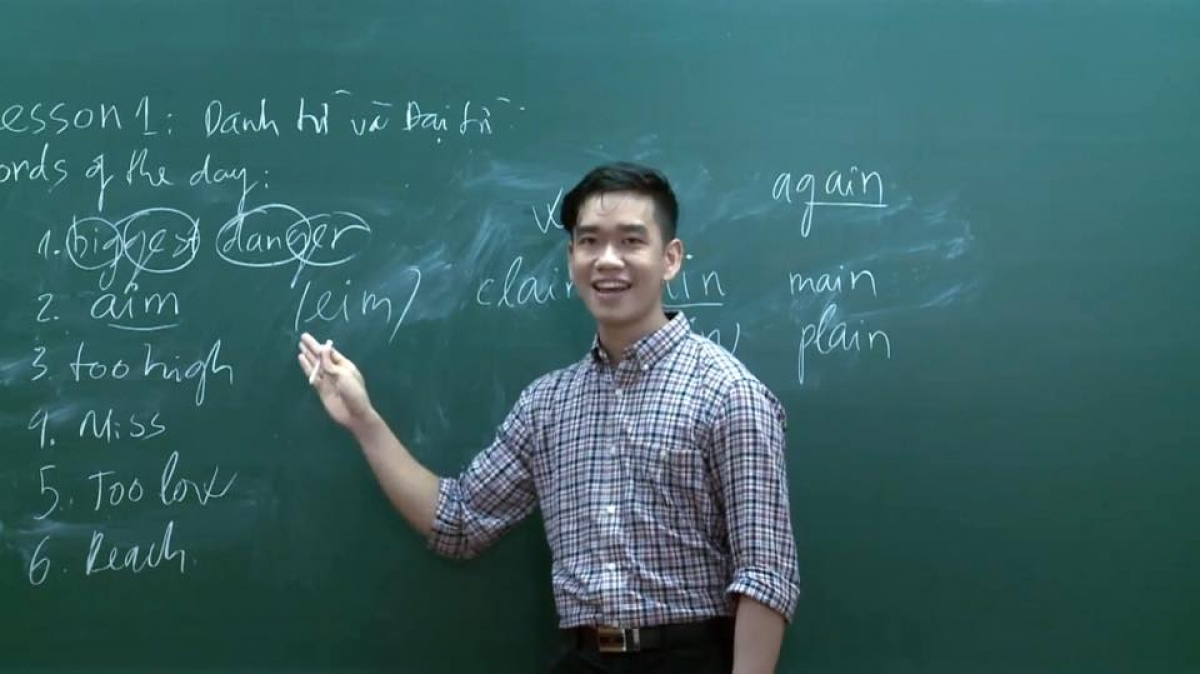 esson 1: Danh từ và Đại từ:
ords of the day:
1. biggest danger
2. aim /eim/
3. too high
4. Miss
5. Too low
6. Reach
again
clain ain main
plain